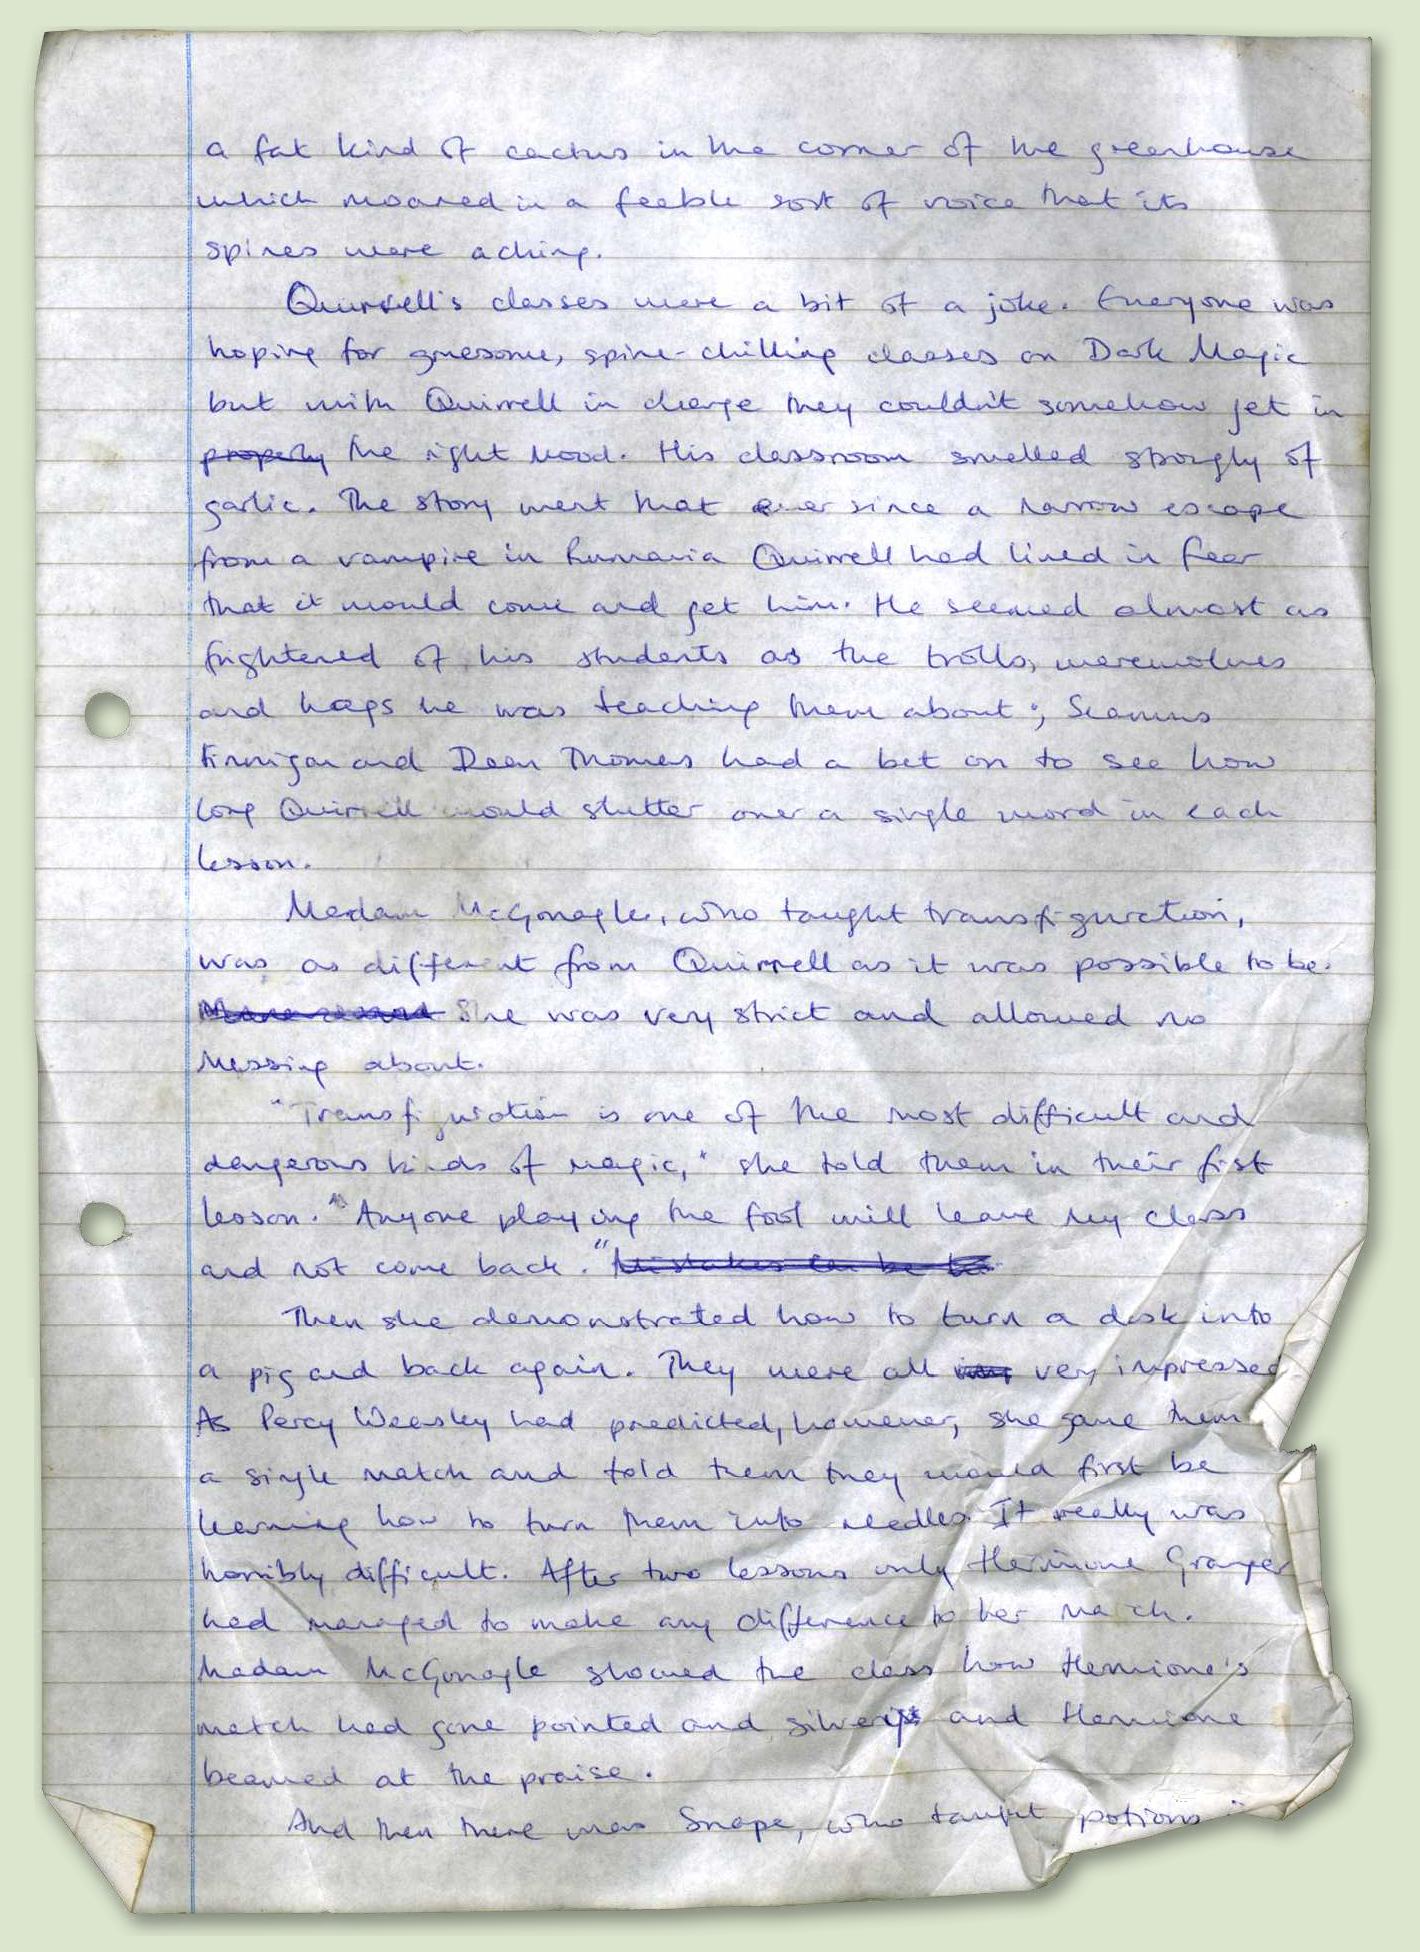 a fat kind of cactus in the corner of the greenhouse
which moaned in a feeble sort of voice that its
spines were aching.
Quirrell's classes were a bit of a joke. Everyone was
hoping for gruesome, spine-chilling classes on Dark Magic
but with Quirrell in charge they couldn't somehow get in
properly the right mood. His classroom smelled strongly of
garlic. The story went that ever since a narrow escape
from a vampire in Rumania Quirrell had lived in fear
that it would come and get him. He seemed almost as
frightened of his students as the trolls, werewolves
and hags he was teaching them about; Seamus
Finnigan and Dean Thomas had a bet on to see how
long Quirrell would stutter over a single word in each
lesson.
Madam McGonagle, who taught transfiguration,
was as different from Quirrell as it was possible to be.
She was very strict and allowed no
messing about.
"Transfiguration is one of the most difficult and
dangerous kinds of magic," she told them in their first
lesson. "Anyone playing the fool will leave my class
and not come back." Mistakes can be
Then she demonstrated how to turn a desk into
a pig and back again. They were all very impressed
As Percy Weasley had predicted, however, she gave them
a single match and told them they would first be
learning how to turn them into needles. It really was
horribly difficult. After two lessons only Hermione Granger
had managed to make any difference to her match.
Madam McGonagle showed the class how Hermione's
match had gone pointed and silvery and Hermione
beamed at the praise.
And then there was Snape, who taught potions